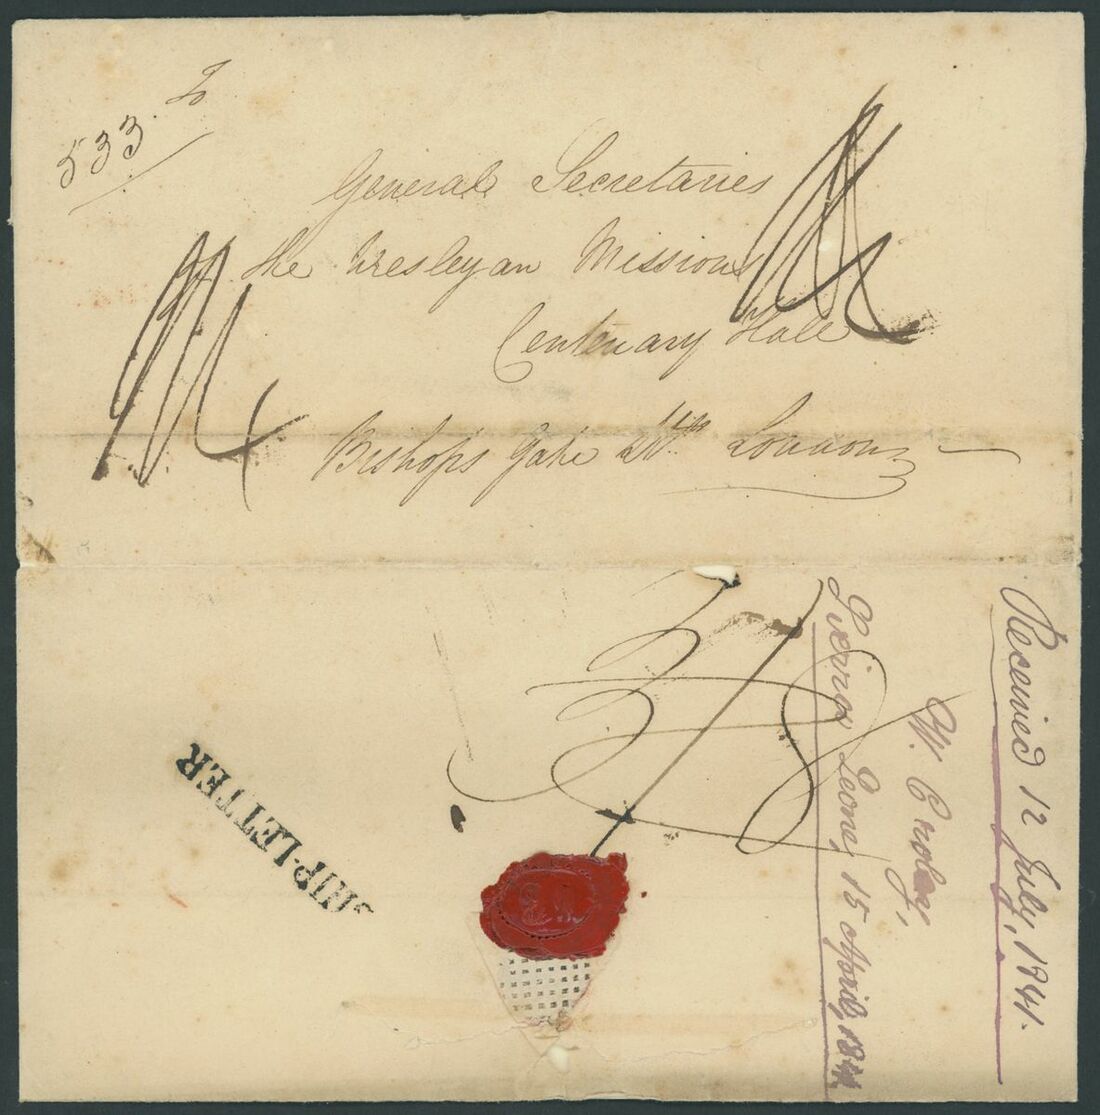 To
533
General Secretaries
of the Wesleyan Missions
Centenary Hall
Bishop's Gate London
SHIP-LETTER
3/8
W. Croley,
Sierra Leone, 15 April, 1841
Received 12 July, 1841.